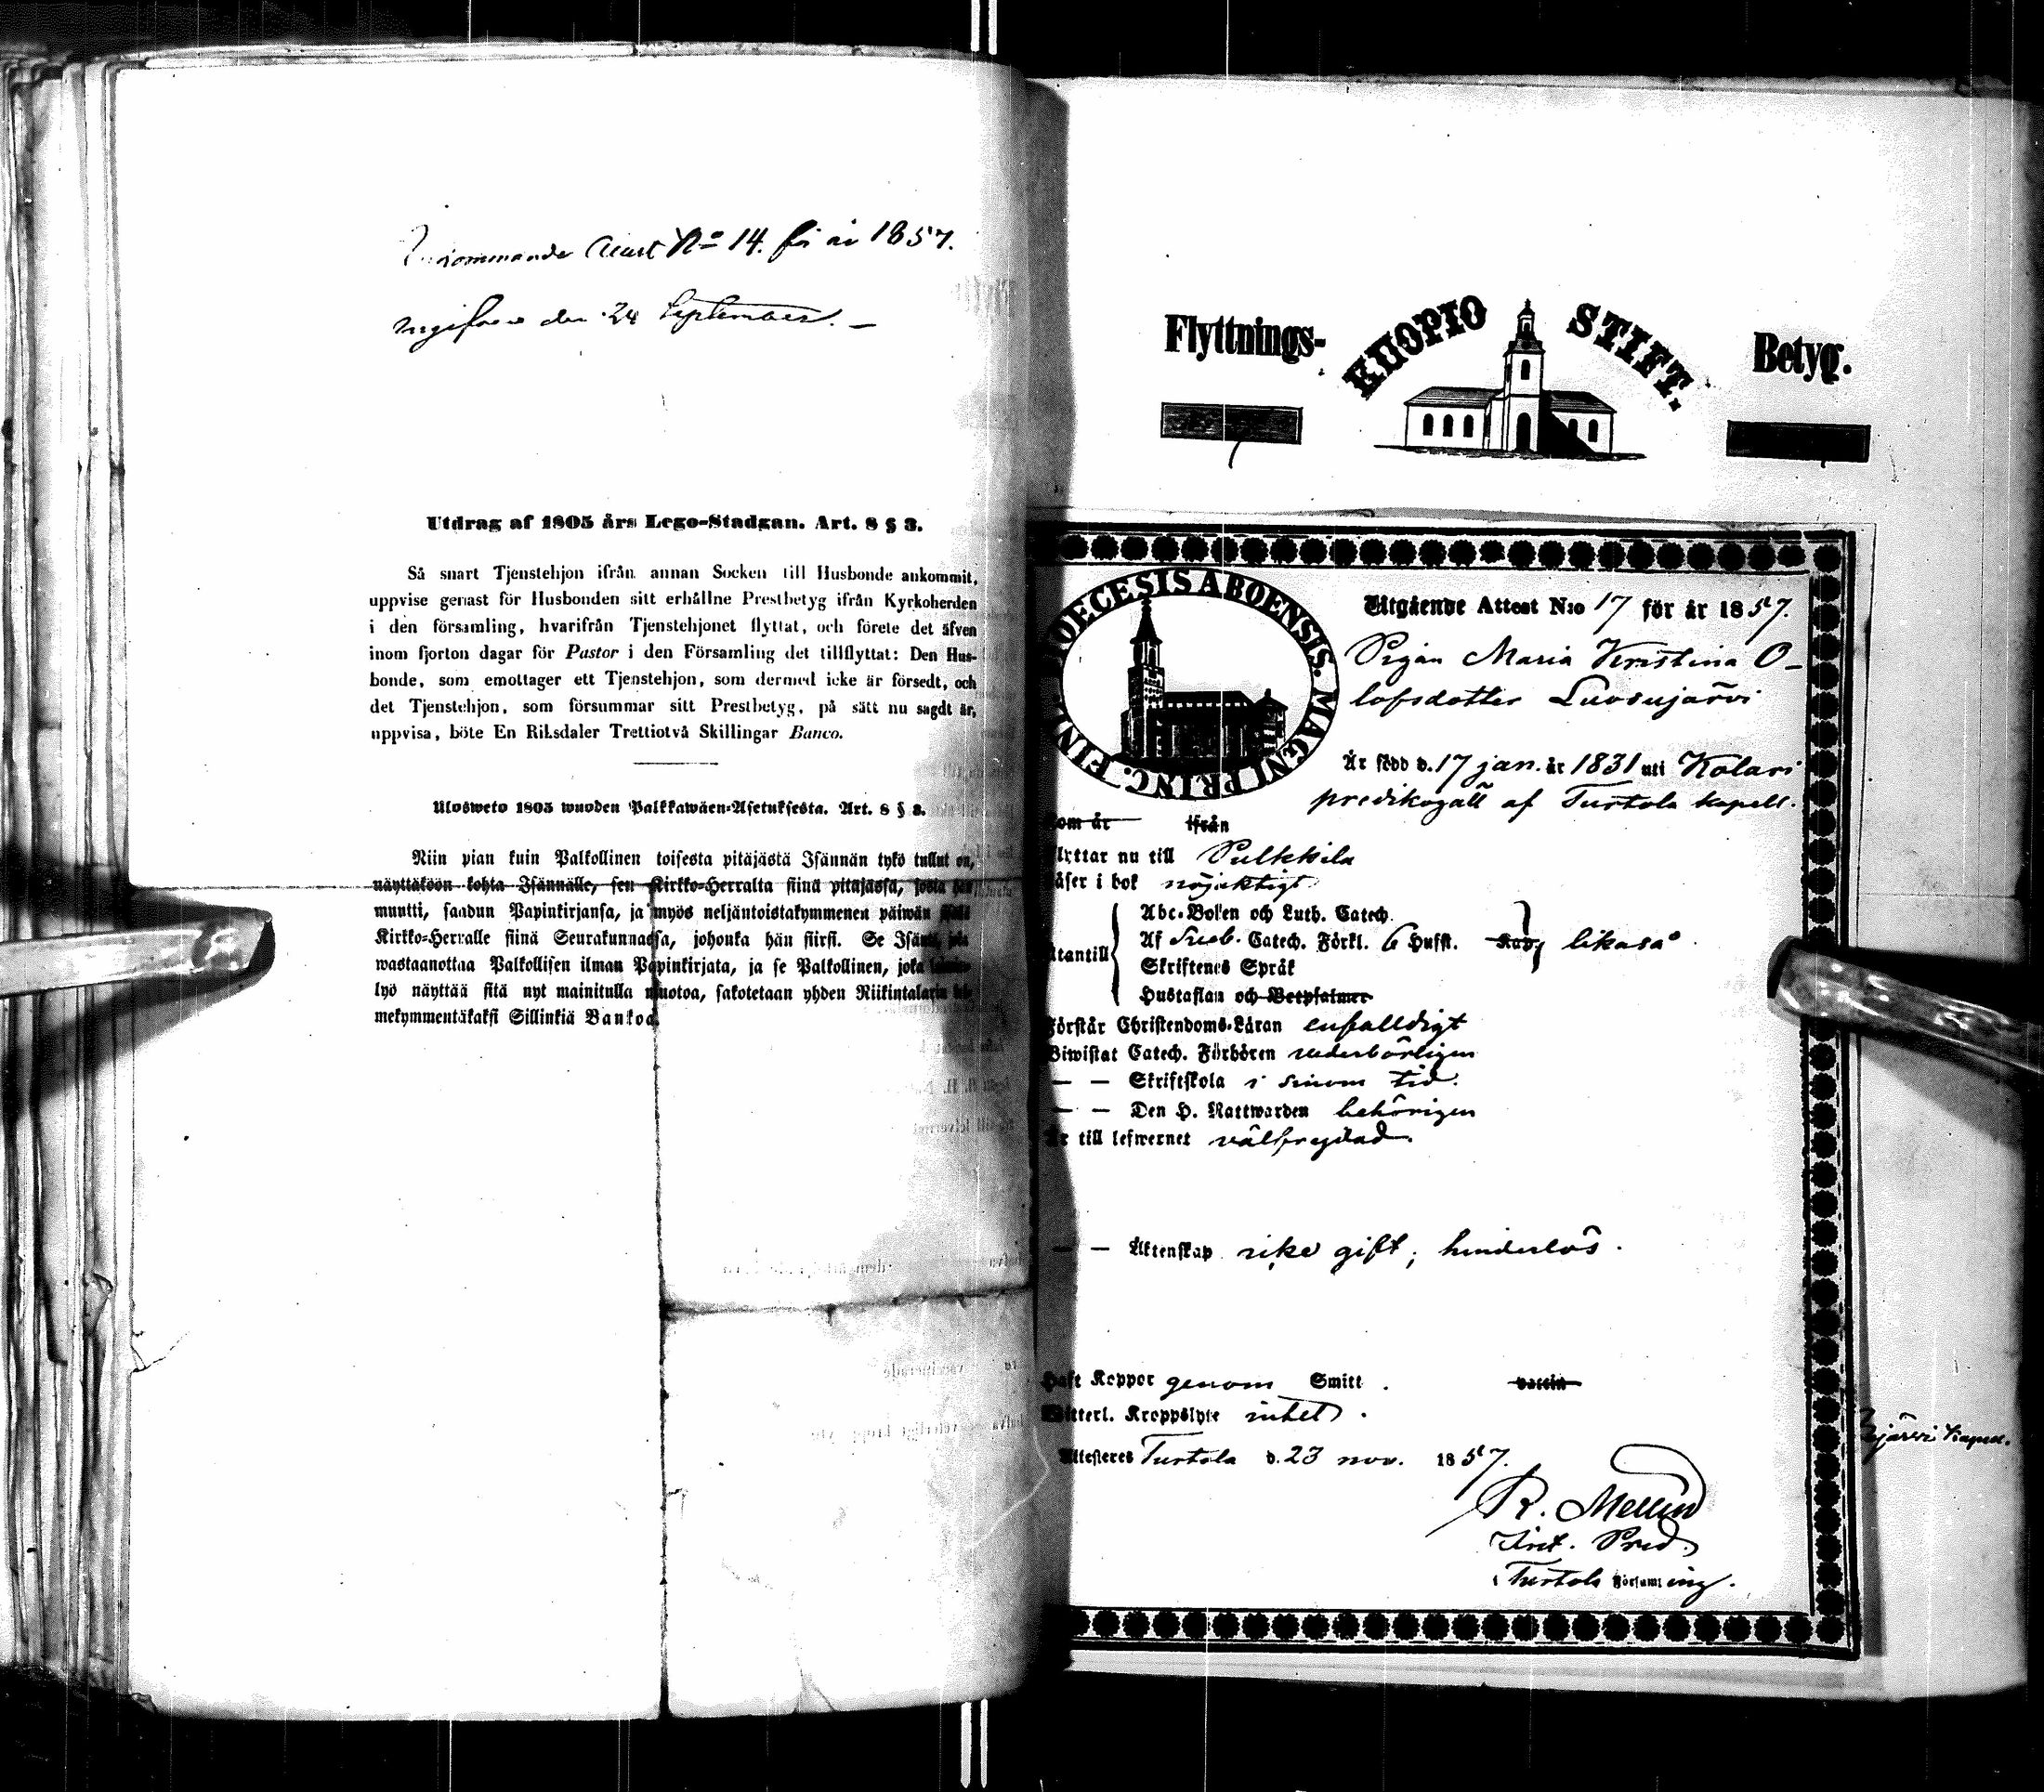 Inkommande Attest No 14. för år 1857.
ingifven den 24 September. –
Utdrag af 1805 års Lego-Stadgan. Art. 8 § 3.
Så snart Tjenstehjon ifrån annan Socken till Husbonde ankommit,
uppvise genast för Husbonden sitt erhållne Prestbetyg ifrån Kyrkoherden
i den församling, hvarifrån Tjenstehjonet flyttat, och förete det äfven
inom fjorton dagar för Pastor i den Församling det tillflyttat: Den Hus-
bonde, som emottager ett Tjenstehjon, som dermed icke är försedt, och
det Tjenstehjon, som försummar sitt Prestbetyg, på sätt nu sagdt är,
uppvisa, böte En Riksdaler Trettiotvå Skillingar Banco.
Ulosweto 1805 wuoden Palkkawäen-Asetuksesta. Art. 8 § 3.
Niin pian kuin Palkollinen toisesta pitäjästä Isännän tykö tullut on,
näyttäköön kohta Isännälle, sen Kirkko-Herralta siinä pitäjässä, josta hän
muutti, saadun Papinkirjansa, ja myös neljäntoistakymmenen päiwän
Kirkko-Herralle siinä Seurakunnassa, johonka hän siirsi. Se Isäntä, joka
wastaanottaa Palkollisen ilman Papinkirjata, ja se Palkollinen, joka
lyö näyttää sitä nyt mainitulla muotoa, sakotetaan yhden Riikintalarin
mekymmentäkaksi Sillinkiä Bankoa.
Flyttnings-
KUOPIO STIFT.
Betyg.
DIOECESIS ABOENSIS. MAGNI PRINC. FINL.
Utgående Attest N:o 17 för år 1857.
Pigan Maria Kristina O-
lofsdotter Luosujärvi
Är född d. 17 jan. år 1831 uti Kolari
predikogäll af Turtola kapell.
Kom år ifrån
Flyttar nu till Pulkkila
Läser i bok nöjaktigt
Abc-Boken och Luth. Catech.
Utantill Af Sveb. Catech. Förkl. 6 Hufst. likaså
Skriftenes Språk
Hustaflan och Botpsalmer
Förstår Christendoms-Läran enfalldigt
Biwistat Catech. Förhören vederbörligen
— — Skriftskola i sinom tid.
— — Den H. Nattwarden behörigen
Är till lefwernet välfrejdad.
— — Äktenskap icke gift; hinderlös.
Haft Koppor genom Smitt. vaccin
Witterl. Kroppslyte intet.
Attesteras Turtola d. 23 nov. 1857.
järvi Kapell.
R. Mellin
Turtola Församling.